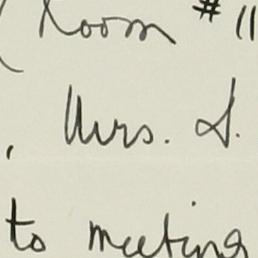 Room #11
, Mrs. S.
to meeting